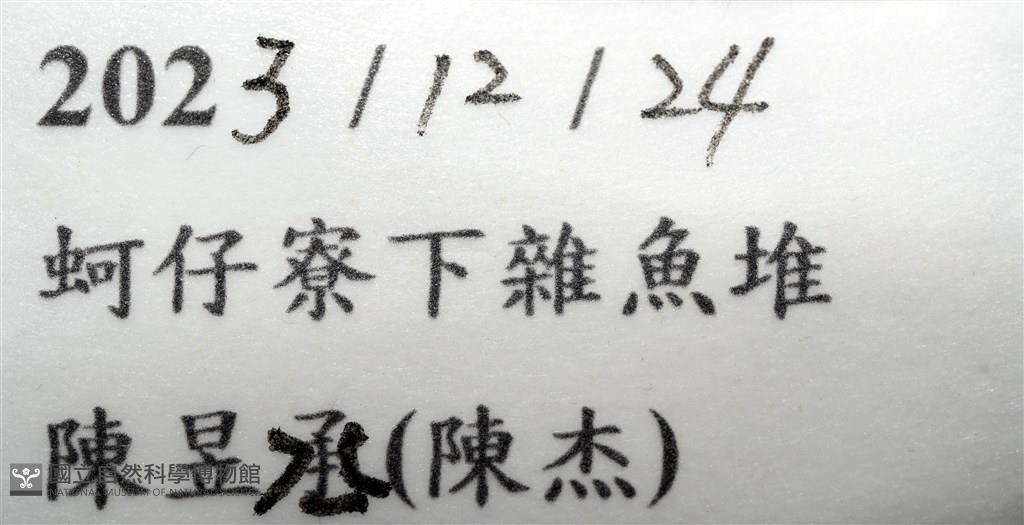 2023/12/24
蚵仔寮下雜魚堆
陳昱丞(陳杰)
國立自然科學博物館
NATIONAL MUSEUM OF NATURAL SCIENCE